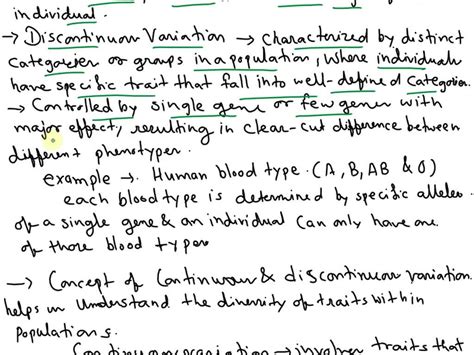 individual.
→ Discontinuous Variation → Characterized by distinct
Categories or groups in a population, where individuals
have specific trait that fall into well-defined Categories.
→ Controlled by single gene or few genes with
major effect, resulting in clear-cut difference between
different phenotypes.
example → Human blood type (A, B, AB & O)
each blood type is determined by specific alleles
of a single gene & an individual can only have one
of those blood types
→ Concept of Continuous & discontinuous variation
helps in understand the diversity of traits within
Populations.
→ involve traits that